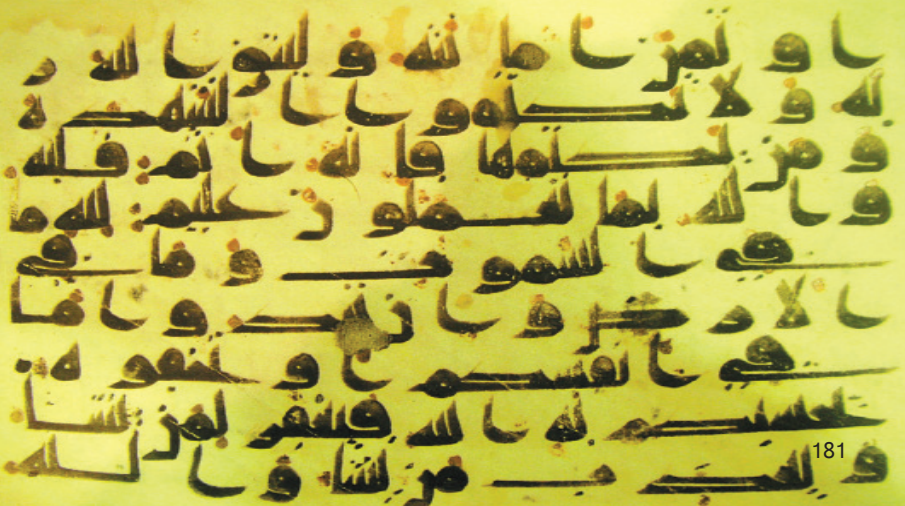 اوتمن امانته وليتق الله ر
به ولا تكتموا الشهدة
ومن يكتمها فانه اثم قلبه
والله بما تعملون عليم لله ما
في السموت وما في
الارض وان تبدوا ما
في انفسكم او تخفوه
يحاسبكم به الله فيغفر لمن يشا
ويعذب من يشا والله
181